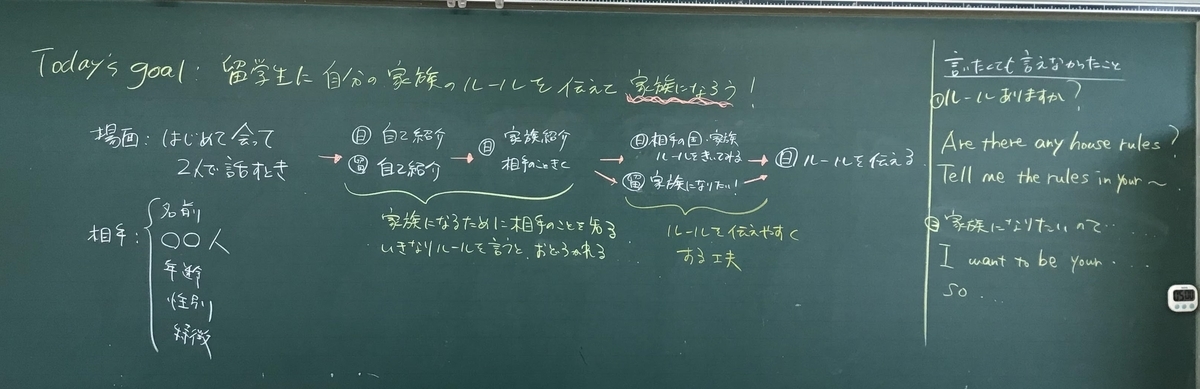 Today's goal: 留学生に自分の家族のルールを伝えて家族になろう!
場面:はじめて会って
2人で話すとき
相手:
名前
〇〇人
年齢
性別
特徴
日 自己紹介
留 自己紹介
日 家族紹介
相手のこときく
日 相手の国・家族
ルールをきいてみる
留 家族になりたい!
日 ルールを伝える
家族になるために相手のことを知る
いきなりルールを言うと、おどろかれる
ルールを伝えやすく
する工夫
言いたくても言えなかったこと
① ルールありますか?
Are there any house rules?
Tell me the rules in your ~.
② 家族になりたいので…
I want to be your ...
so ...